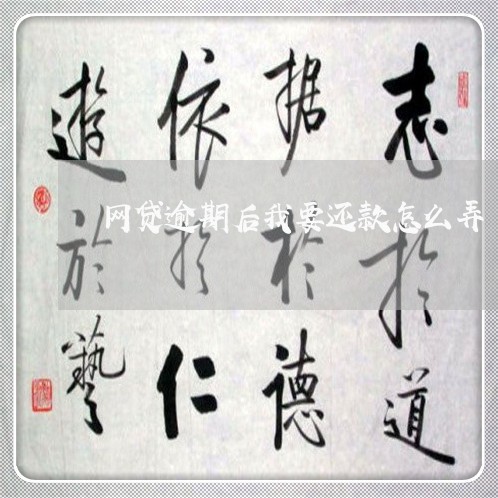 志於道
据於德
依於仁
遊於藝
网贷逾期后我要还款怎么弄